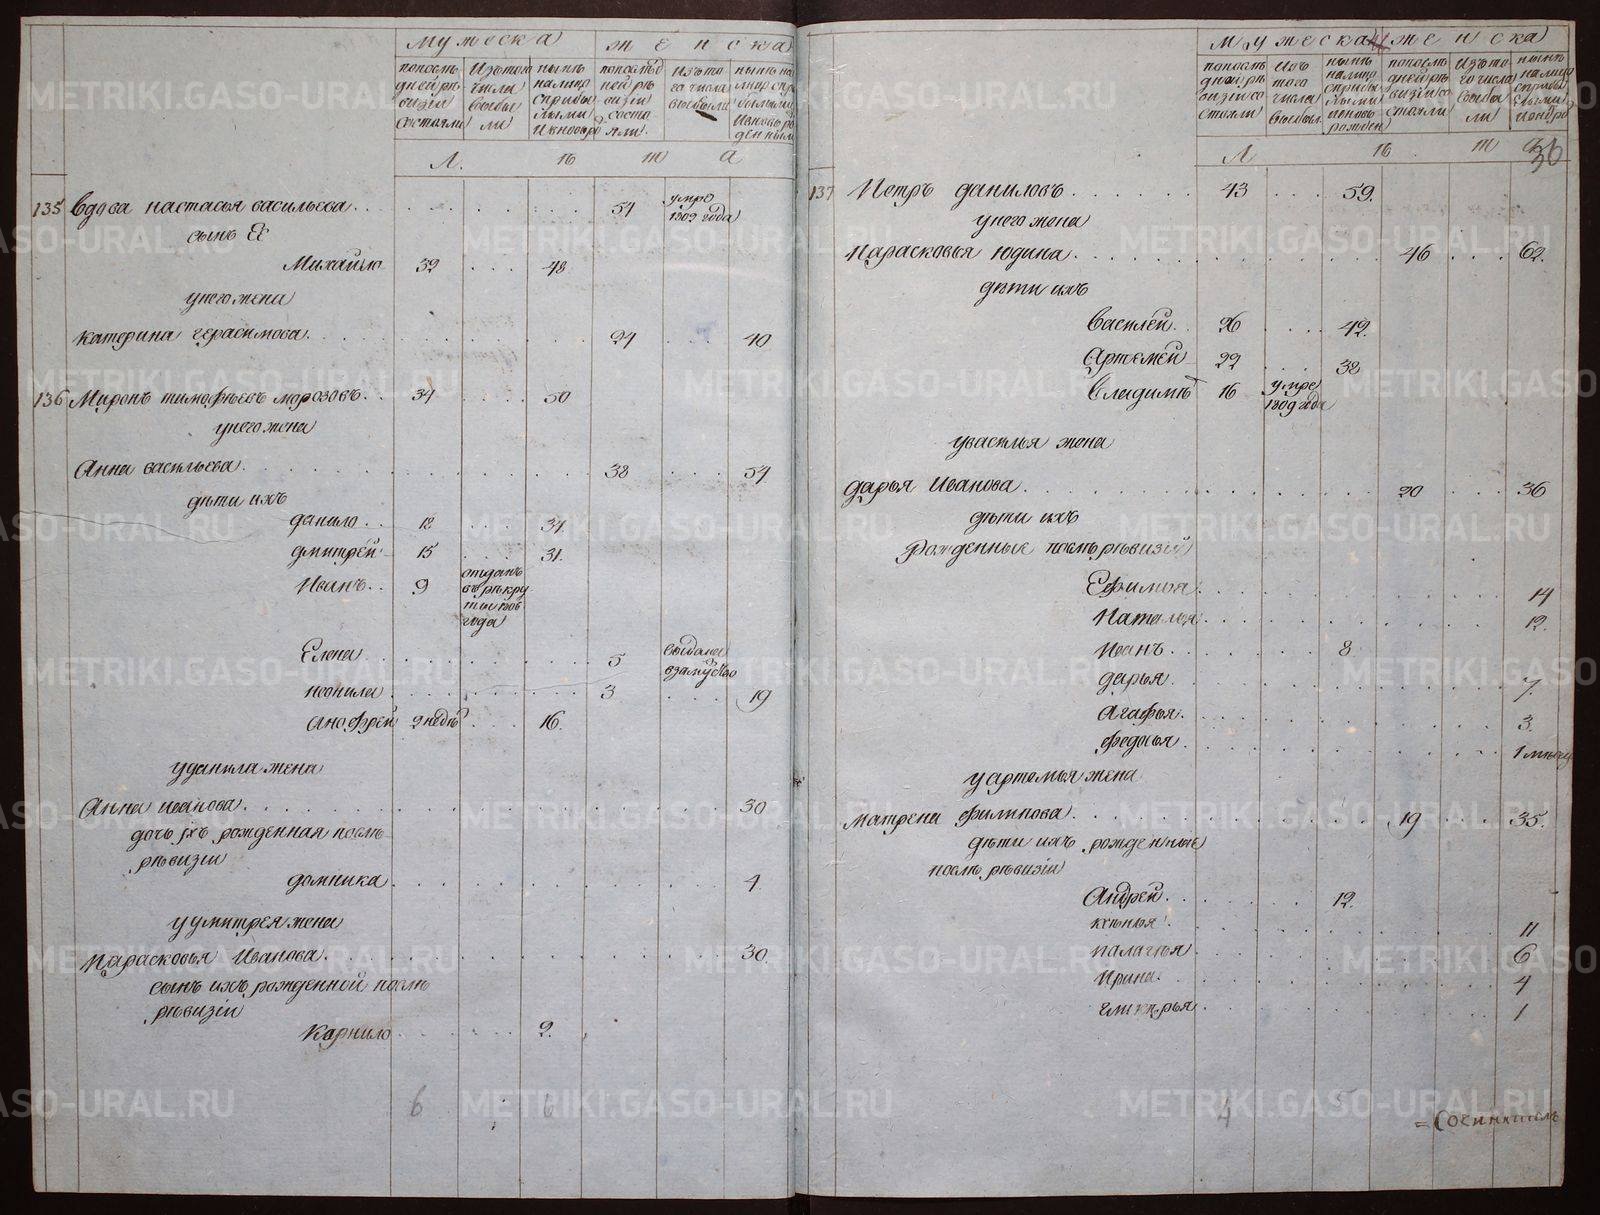 мужеска женска
по последней ревизии состояли
изъ того числа выбыли
ныне налицо с прибылыми и вновь
по последней ревизии состояли
изъ того числа выбыли
ныне налицо с прибылыми и вновь рожденными
Л ѣ т а
135 Вдова настасья васильева 54 умре 1809 года
сынъ Ее
Михайло 32 48
у него жена
катерина герасимова 24 40
136 Миронъ тимофѣевъ морозовъ 34 50
у него жена
Анна васильева 38 54
дѣти ихъ
данило 18 34
дмитрей 15 31
Иванъ 9 отданъ въ рѣкруты 1806 года
Елена 5 выдана в замужство
неонила 3 19
Анофрей 2 недѣ 16
у данила жена
Анна иванова 30
дочь ихъ рожденная послѣ
рѣвизіи
домника 4
у дмитрея жена
Парасковья Иванова 30
сынъ ихъ рожденной послѣ
рѣвизіи
Карнило 2
6 6
мужеска женска
по последней рѣвизіи состояли
изъ того числа выбыли
ныне налицо с прибылыми и вновь рожден
по последней рѣвизіи состояли
изъ того числа выбыли
ныне налицо с прибылыми и вновь ро
Л ѣ т а
36
137 Петръ даниловъ 43 59
у него жена
Парасковья юдина 46 62
дѣти ихъ
Василей 26 42
Артемей 22 38
Владимѣ 16 умре 1809 года
у василья жена
дарья Иванова 20 36
дѣти ихъ
Рожденные послѣ рѣвизіи
Ефимья 14
Наталья 12
Иванъ 8
дарья 7
Агафья 3
федосья 1 месец
у артемья жена
матрена филипова 19 35
дѣти ихъ рожденные
послѣ рѣвизіи
Андрей 12
ксѣнья 11
палагѣя 6
Ирина 4
гликѣрья 1
4 5
METRIKI.GASO-URAL.RU